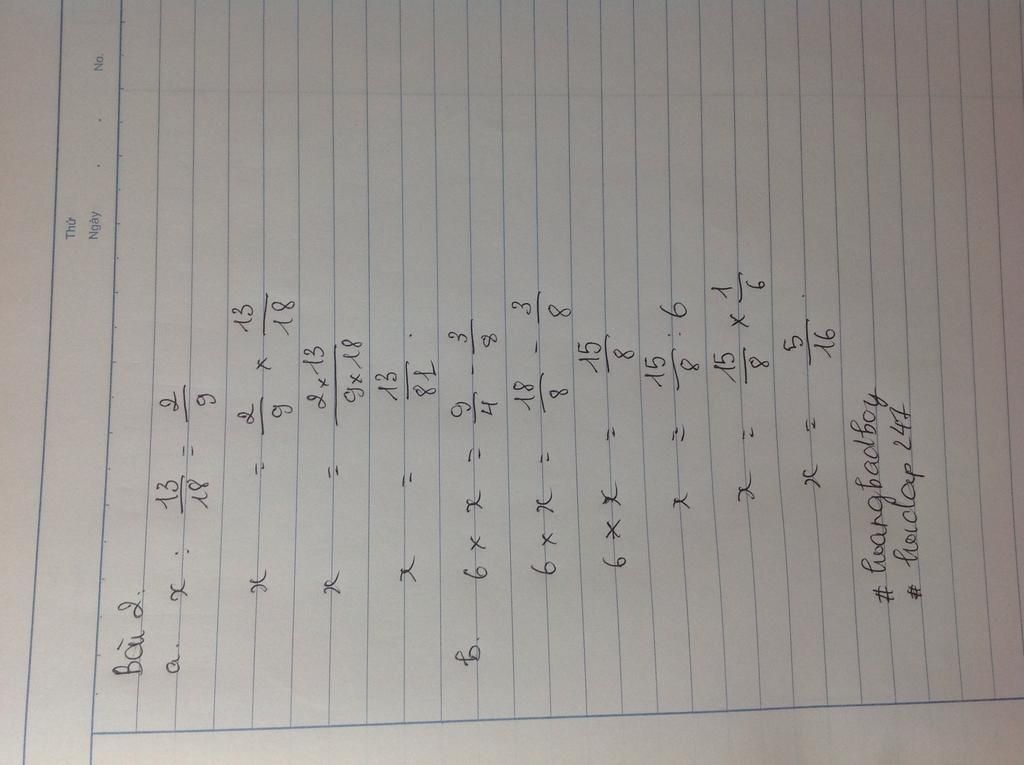 Thứ
Ngày . . No.
Bài 2.
a. x : 13/18 = 2/9
x = 2/9 x 13/18
x = 2x13/9x18
x = 13/81.
b. 6 x x = 9/4 - 3/8
6 x x = 18/8 - 3/8
6 x x = 15/8
x = 15/8 : 6
x = 15/8 x 1/6
x = 5/16.
# hoangbadboy
# hoidap 247